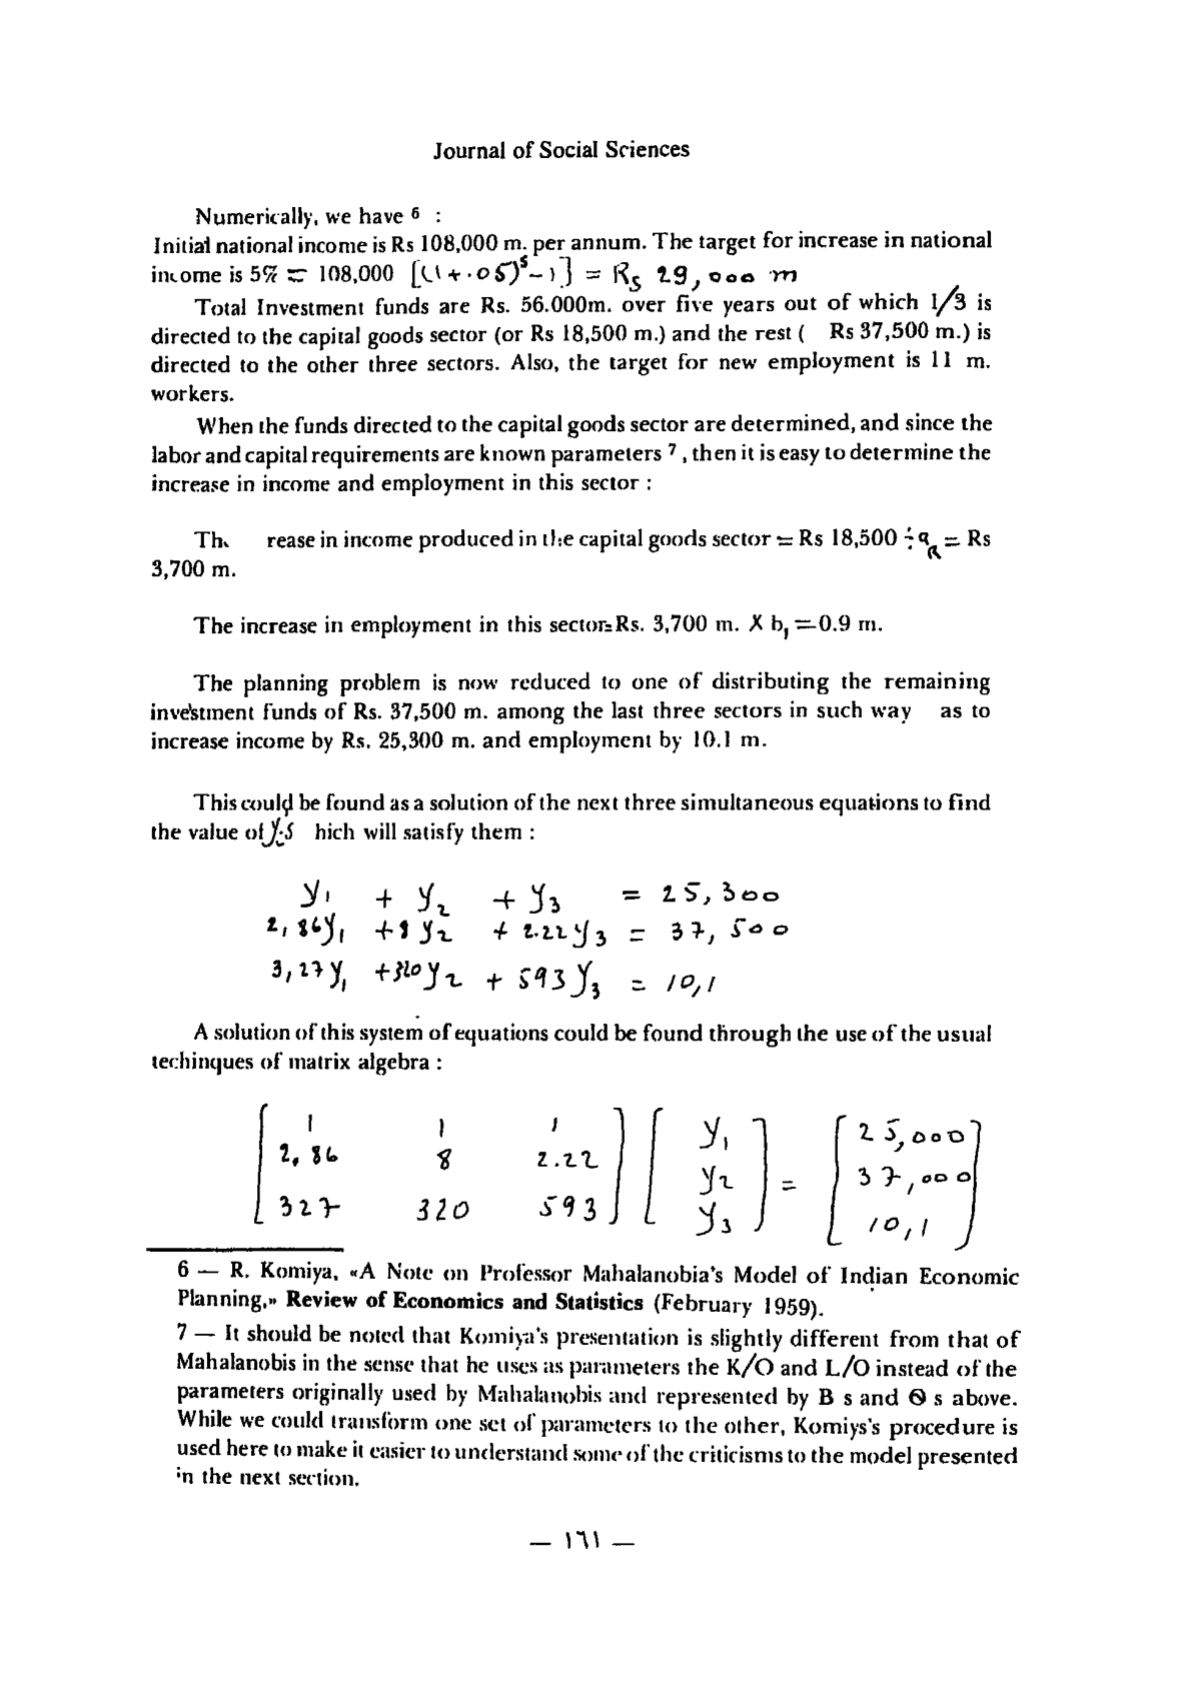 Journal of Social Sciences
Numerically, we have 6 :
Initial national income is Rs 108,000 m. per annum. The target for increase in national
income is 5% = 108,000 [(1+.05)^5-1] = Rs 29,000 m
Total Investment funds are Rs. 56.000m. over five years out of which 1/3 is
directed to the capital goods sector (or Rs 18,500 m.) and the rest ( Rs 37,500 m.) is
directed to the other three sectors. Also, the target for new employment is 11 m.
workers.
When the funds directed to the capital goods sector are determined, and since the
labor and capital requirements are known parameters 7 , then it is easy to determine the
increase in income and employment in this sector :
rease in income produced in the capital goods sector = Rs 18,500 ÷ = Rs
3,700 m.
The increase in employment in this sector=Rs. 3,700 m. X b₁ =0.9 m.
The planning problem is now reduced to one of distributing the remaining
investment funds of Rs. 37,500 m. among the last three sectors in such way as to
increase income by Rs. 25,300 m. and employment by 10.1 m.
This could be found as a solution of the next three simultaneous equations to find
the value of hich will satisfy them :
y₁ + y₂ + y₃ = 25,300
2,86y₁ +8 y₂ + 2.22y₃ = 37,500
3,27y₁ +320y₂ + 593y₃ = 10,1
A solution of this system of equations could be found through the use of the usual
techinques of matrix algebra :
1 1 1 y₁ 25,000
2,86 8 2.22 y₂ = 37,000
327 320 593 y₃ 10,1
6 — R. Komiya, «A Note on Professor Mahalanobia's Model of Indian Economic
Planning,» Review of Economics and Statistics (February 1959).
7 — It should be noted that Komiya's presentation is slightly different from that of
Mahalanobis in the sense that he uses as parameters the K/O and L/O instead of the
parameters originally used by Mahalanobis and represented by B s and Θ s above.
While we could transform one set of parameters to the other, Komiys's procedure is
used here to make it easier to understand some of the criticisms to the model presented
in the next section.
— ١٦١ —